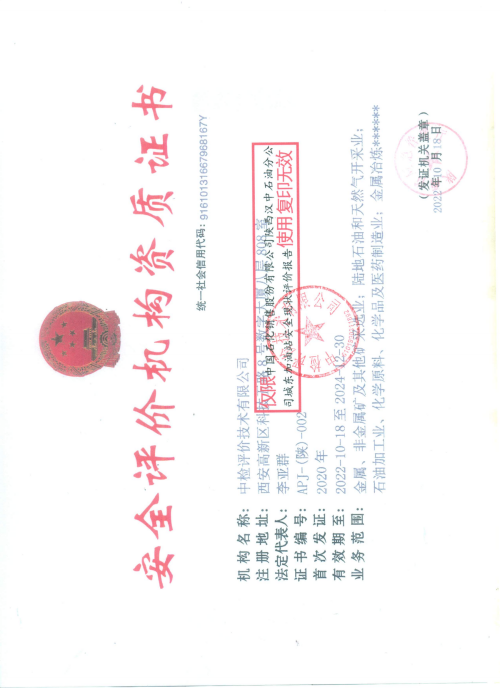 安全评价机构资质证书
统一社会信用代码：91610131667968167Y
机构名称：中检评价技术有限公司
注册地址：西安高新区科技二路68号数字大厦八层808室
法定代表人：李亚群
证书编号：APJ-(陕)-002
首次发证：2020年
有效期至：2022-10-18至2024-12-30
业务范围：金属、非金属矿及其他矿采选业；陆地石油和天然气开采业；
石油加工业、化学原料、化学品及医药制造业；金属冶炼******
权限中国石化销售股份有限公司陕西汉中石油分公
司城东加油站安全现状评价报告使用复印无效
（发证机关盖章）
2022年10月18日